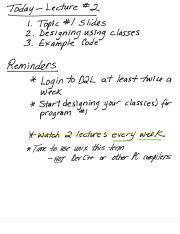 Today - Lecture #2
1. Topic #1 Slides
2. Designing using classes
3. Example Code
Reminders
* Login to D2L at least twice a
week
* Start designing your class(es) for
program #1
* Watch 2 lectures every week
* Time to use unix this term
- NOT Dev C++ or other PC compilers